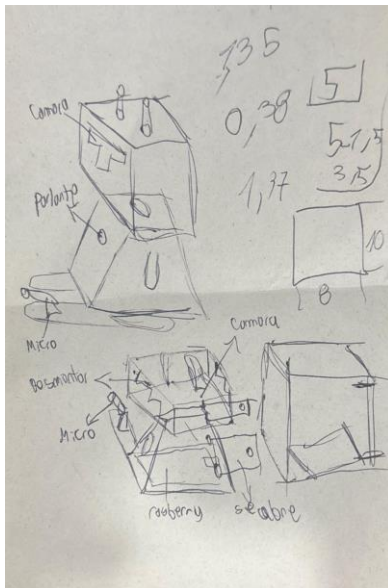 135
Camara
0,38
5
5-1,5
3,5
1,37
Parlante
10
8
Micro
Camara
Desmontar
Micro
rasberry
se abre